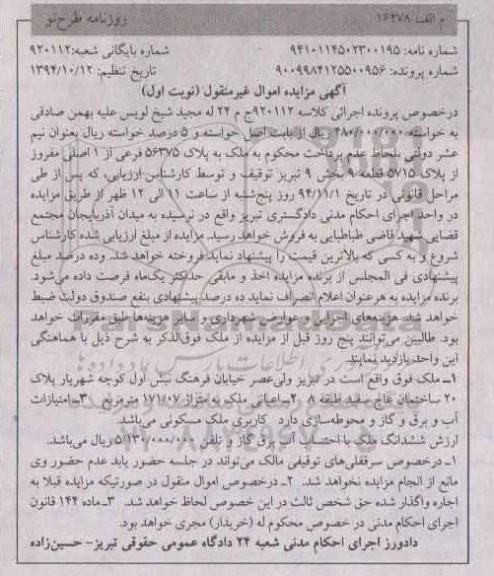 م الف: ۱۶۴۷۸ روزنامه طرح‌نو
شماره نامه: ۹۴۱۰۱۱۴۵۰۲۳۰۰۱۹۵ شماره بایگانی شعبه: ۹۲۰۱۱۲
شماره پرونده: ۹۰۰۹۹۸۴۱۲۵۵۰۰۹۵۶ تاریخ تنظیم: ۱۳۹۴/۱۰/۱۲
آگهی مزایده اموال غیرمنقول (نوبت اول)
درخصوص پرونده اجرائی کلاسه ۹۲۰۱۱۲ج م ۲۴ له مجید شیخ لویس علیه بهمن صادقی
به خواسته ۴۸۰/۰۰۰/۰۰۰ ریال از بابت اصل خواسته و ۵ درصد خواسته ریال بعنوان نیم
عشر دولتی بلحاظ عدم پرداخت محکوم به ملک به پلاک ۵۶۳۷۵ فرعی از ۱ اصلی مفروز
از پلاک ۵۷۱۵ قطعه ۹ بخش ۹ تبریز توقیف و توسط کارشناس ارزیابی، که پس از طی
مراحل قانونی در تاریخ ۹۴/۱۱/۱ روز پنج‌شنبه از ساعت ۱۱ الی ۱۲ ظهر از طریق مزایده
در واحد اجرای احکام مدنی دادگستری تبریز واقع در نرسیده به میدان آذربایجان مجتمع
قضایی شهید قاضی طباطبایی به فروش خواهد رسید. مزایده از مبلغ ارزیابی شده کارشناس
شروع و به کسی که بالاترین قیمت را پیشنهاد نماید فروخته خواهد شد. وده درصد مبلغ
پیشنهادی فی المجلس از برنده مزایده اخذ و مابقی حداکثر یک‌ماه فرصت داده می‌شود.
برنده مزایده به هرعنوان اعلام انصراف نماید ده درصد پیشنهادی بنفع صندوق دولت ضبط
خواهد شد. هزینه‌های اجرایی و عوارض شهرداری و سایر هزینه‌ها طبق مقررات خواهد
بود. طالبین می‌توانند پنج روز قبل از مزایده از ملک فوق‌الذکر به شرح ذیل با هماهنگی
این واحد بازدید نمایند.
۱ـ ملک فوق واقع است در تبریز ولی‌عصر خیابان فرهنگ نبش اول کوچه شهریار پلاک
۲۰ ساختمان عاج سفید طبقه ۸ ۲ـ اعیانی ملک به متراژ ۱۷۱/۰۷ مترمربع ۳ـ امتیازات
آب و برق و گاز و محوطه‌سازی دارد کاربری ملک مسکونی می‌باشد.
ارزش ششدانگ ملک با احتساب آب برق گاز و تلفن ۵/۱۳۰/۰۰۰/۰۰۰ ریال می‌باشد.
۱ـ درخصوص سرقفلی‌های توقیفی مالک می‌تواند در جلسه حضور یابد عدم حضور وی
مانع از انجام مزایده نخواهد شد. ۲ـ درخصوص اموال منقول در صورتیکه مزایده قبلا به
اجاره واگذار شده حق شخص ثالث در این خصوص لحاظ خواهد شد. ۳ـ ماده ۱۴۴ قانون
اجرای احکام مدنی در خصوص محکوم له (خریدار) مجری خواهد بود.
دادورز اجرای احکام مدنی شعبه ۲۴ دادگاه عمومی حقوقی تبریز- حسین‌زاده